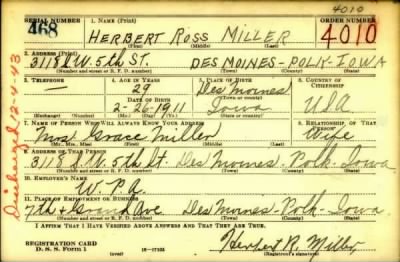 4010
SERIAL NUMBER 1. NAME (Print) ORDER NUMBER
468 HERBERT ROSS MILLER 4010
(First) (Middle) (Last)
2. ADDRESS (Print)
3118 S.W. 5th ST. DES MOINES - POLK - IOWA
(Number and street or R. F. D. number) (Town) (County) (State)
3. TELEPHONE 4. AGE IN YEARS 5. PLACE OF BIRTH 6. COUNTRY OF CITIZENSHIP
— 29 Des Moines
DATE OF BIRTH (Town or county)
2-26-1911 Iowa USA
(Exchange) (Number) (Mo.) (Day) (Yr.) (State or country)
7. NAME OF PERSON WHO WILL ALWAYS KNOW YOUR ADDRESS 8. RELATIONSHIP OF THAT PERSON
Mrs. Grace Miller Wife
(Mr., Mrs., Miss) (First) (Middle) (Last)
9. ADDRESS OF THAT PERSON
3118 S.W. 5th St. Des Moines - Polk - Iowa
(Number and street or R. F. D. number) (Town) (County) (State)
10. EMPLOYER'S NAME
W.P.A.
11. PLACE OF EMPLOYMENT OR BUSINESS
7th & Grand Ave Des Moines - Polk - Iowa.
(Number and street or R. F. D. number) (Town) (County) (State)
I AFFIRM THAT I HAVE VERIFIED ABOVE ANSWERS AND THAT THEY ARE TRUE.
REGISTRATION CARD
D. S. S. Form 1 (over) Herbert R. Miller
(Registrant's signature)
Discharged 12-4-43